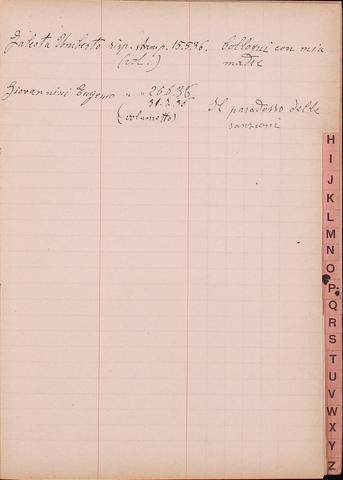 Galeota Umberto risp. stamp. 15.5.36. Colloqui con mia
(vol.) madre
Giovannini Eugenio " " 26.6.36
31.7.36 Il paradosso delle
(volumetto) sanzioni
H
I
J
K
L
M
N
O
P
Q
R
S
T
U
V
W
X
Y
Z